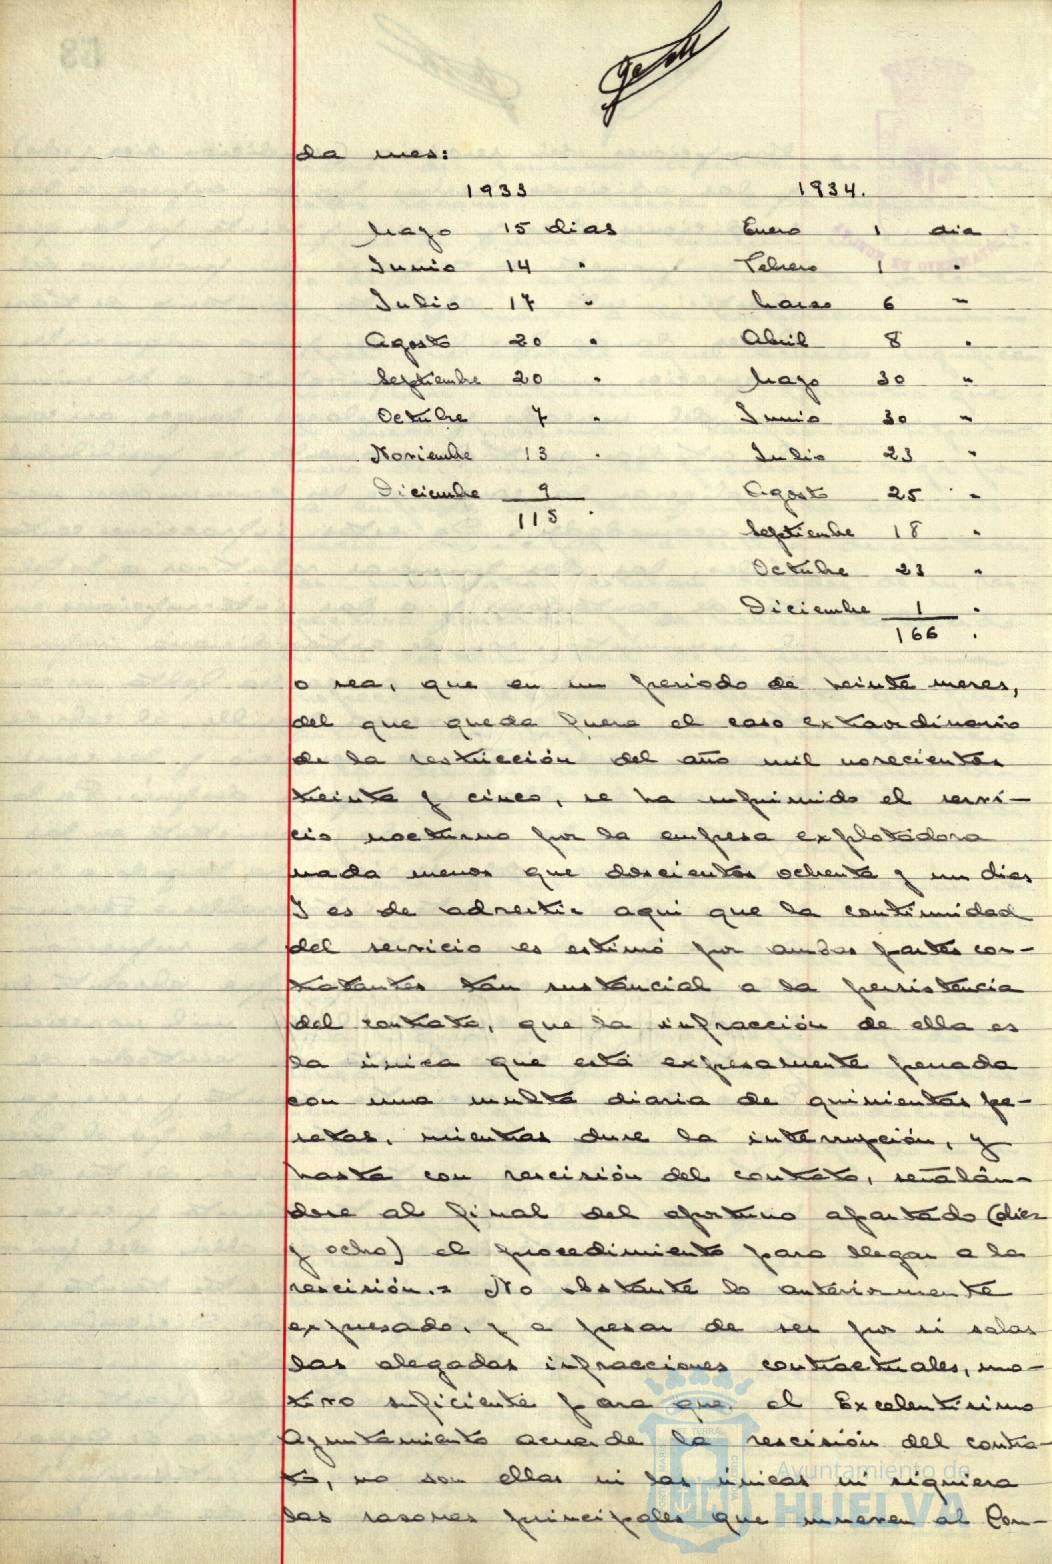 da mes:
1933 1934.
Mayo 15 dias Enero 1 dia
Junio 14 " Febrero 1 "
Julio 17 " Marzo 6 "
Agosto 20 " Abril 8 "
Septiembre 20 " Mayo 30 "
Octubre 7 " Junio 30 "
Noviembre 13 " Julio 23 "
Diciembre 9 Agosto 25 "
115 " Septiembre 18 "
Octubre 23 "
Diciembre 1 "
166 "
o sea, que en un periodo de veinte meses,
del que queda fuera el caso extraordinario
de la restricción del año mil novecientos
treinta y cinco, se ha suprimido el servi-
cio nocturno por la empresa explotadora
nada menos que doscientos ochenta y un dias
Y es de advertir aqui que la continuidad
del servicio es estimó por ambas partes con-
tratantes tan sustancial a la persistencia
del contrato, que la infracción de ella es
la única que está expresamente penada
con una multa diaria de quinientas pe-
setas, mientras dure la interrupción, y
hasta con rescisión del contrato, señalán-
dose al final del oportuno apartado (diez
y ocho) el procedimiento para llegar a la
rescisión.= No obstante lo anteriormente
expresado, y a pesar de ser por si solas
las alegadas infracciones contractuales, mo-
tivo suficiente para que el Excelentisimo
Ayuntamiento acuerde la rescisión del contra-
to, no son ellas ni las únicas ni siquiera
las razones principales que mueven al Con-
Ayuntamiento de
HUELVA